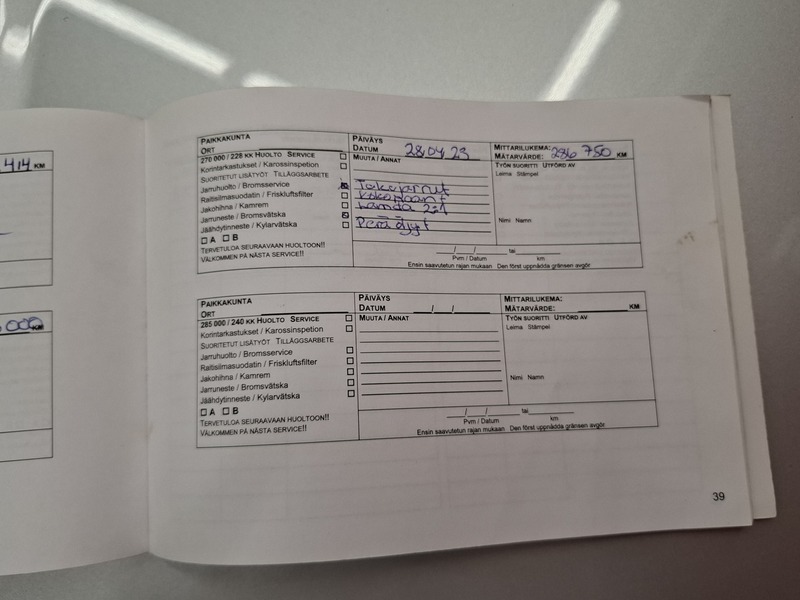 414 KM
000 KM
PAIKKAKUNTA
ORT
PÄIVÄYS
DATUM 28,04,23
MITTARILUKEMA:
MÄTARVÄRDE: 286 750 KM
270 000 / 228 KK HUOLTO SERVICE
Korintarkastukset / Karossinspetion
SUORITETUT LISÄTYÖT TILLÄGGSARBETE
Jarruhuolto / Bromsservice
Raitisilmasuodatin / Friskluftsfilter
Jakohihna / Kamrem
Jarruneste / Bromsvätska
Jäähdytinneste / Kylarvätska
A B
TERVETULOA SEURAAVAAN HUOLTOON!!
VÄLKOMMEN PÅ NÄSTA SERVICE!!
MUUTA / ANNAT
Takajarrut
Lamda 2:1
Perä öljyt
TYÖN SUORITTI UTFÖRD AV
Leima Stämpel
Nimi Namn
__/__/__ tai
Pvm / Datum km
Ensin saavutetun rajan mukaan Den först uppnådda gränsen avgör
PAIKKAKUNTA
ORT
PÄIVÄYS
DATUM / /
MITTARILUKEMA:
MÄTARVÄRDE: KM
285 000 / 240 KK HUOLTO SERVICE
Korintarkastukset / Karossinspetion
SUORITETUT LISÄTYÖT TILLÄGGSARBETE
Jarruhuolto / Bromsservice
Raitisilmasuodatin / Friskluftsfilter
Jakohihna / Kamrem
Jarruneste / Bromsvätska
Jäähdytinneste / Kylarvätska
A B
TERVETULOA SEURAAVAAN HUOLTOON!!
VÄLKOMMEN PÅ NÄSTA SERVICE!!
MUUTA / ANNAT
TYÖN SUORITTI UTFÖRD AV
Leima Stämpel
Nimi Namn
__/__/__ tai
Pvm / Datum km
Ensin saavutetun rajan mukaan Den först uppnådda gränsen avgör
39